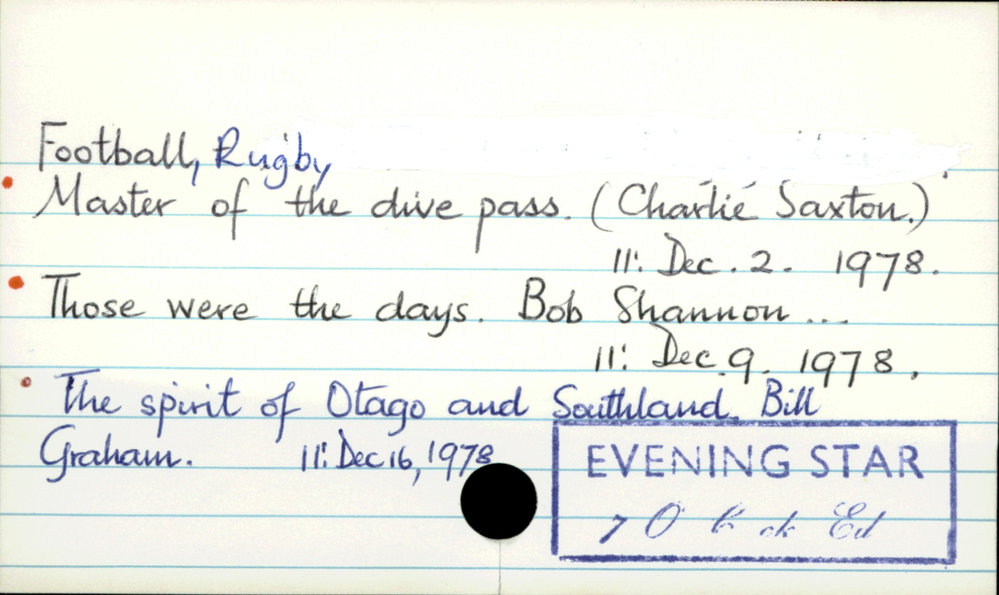 Football, Rugby
Master of the dive pass. (Charlie Saxton.)
11: Dec. 2. 1978.
Those were the days. Bob Shannon ...
11: Dec. 9. 1978.
The spirit of Otago and Southland. Bill
Graham. 11: Dec 16, 1978
EVENING STAR
7 O Ed